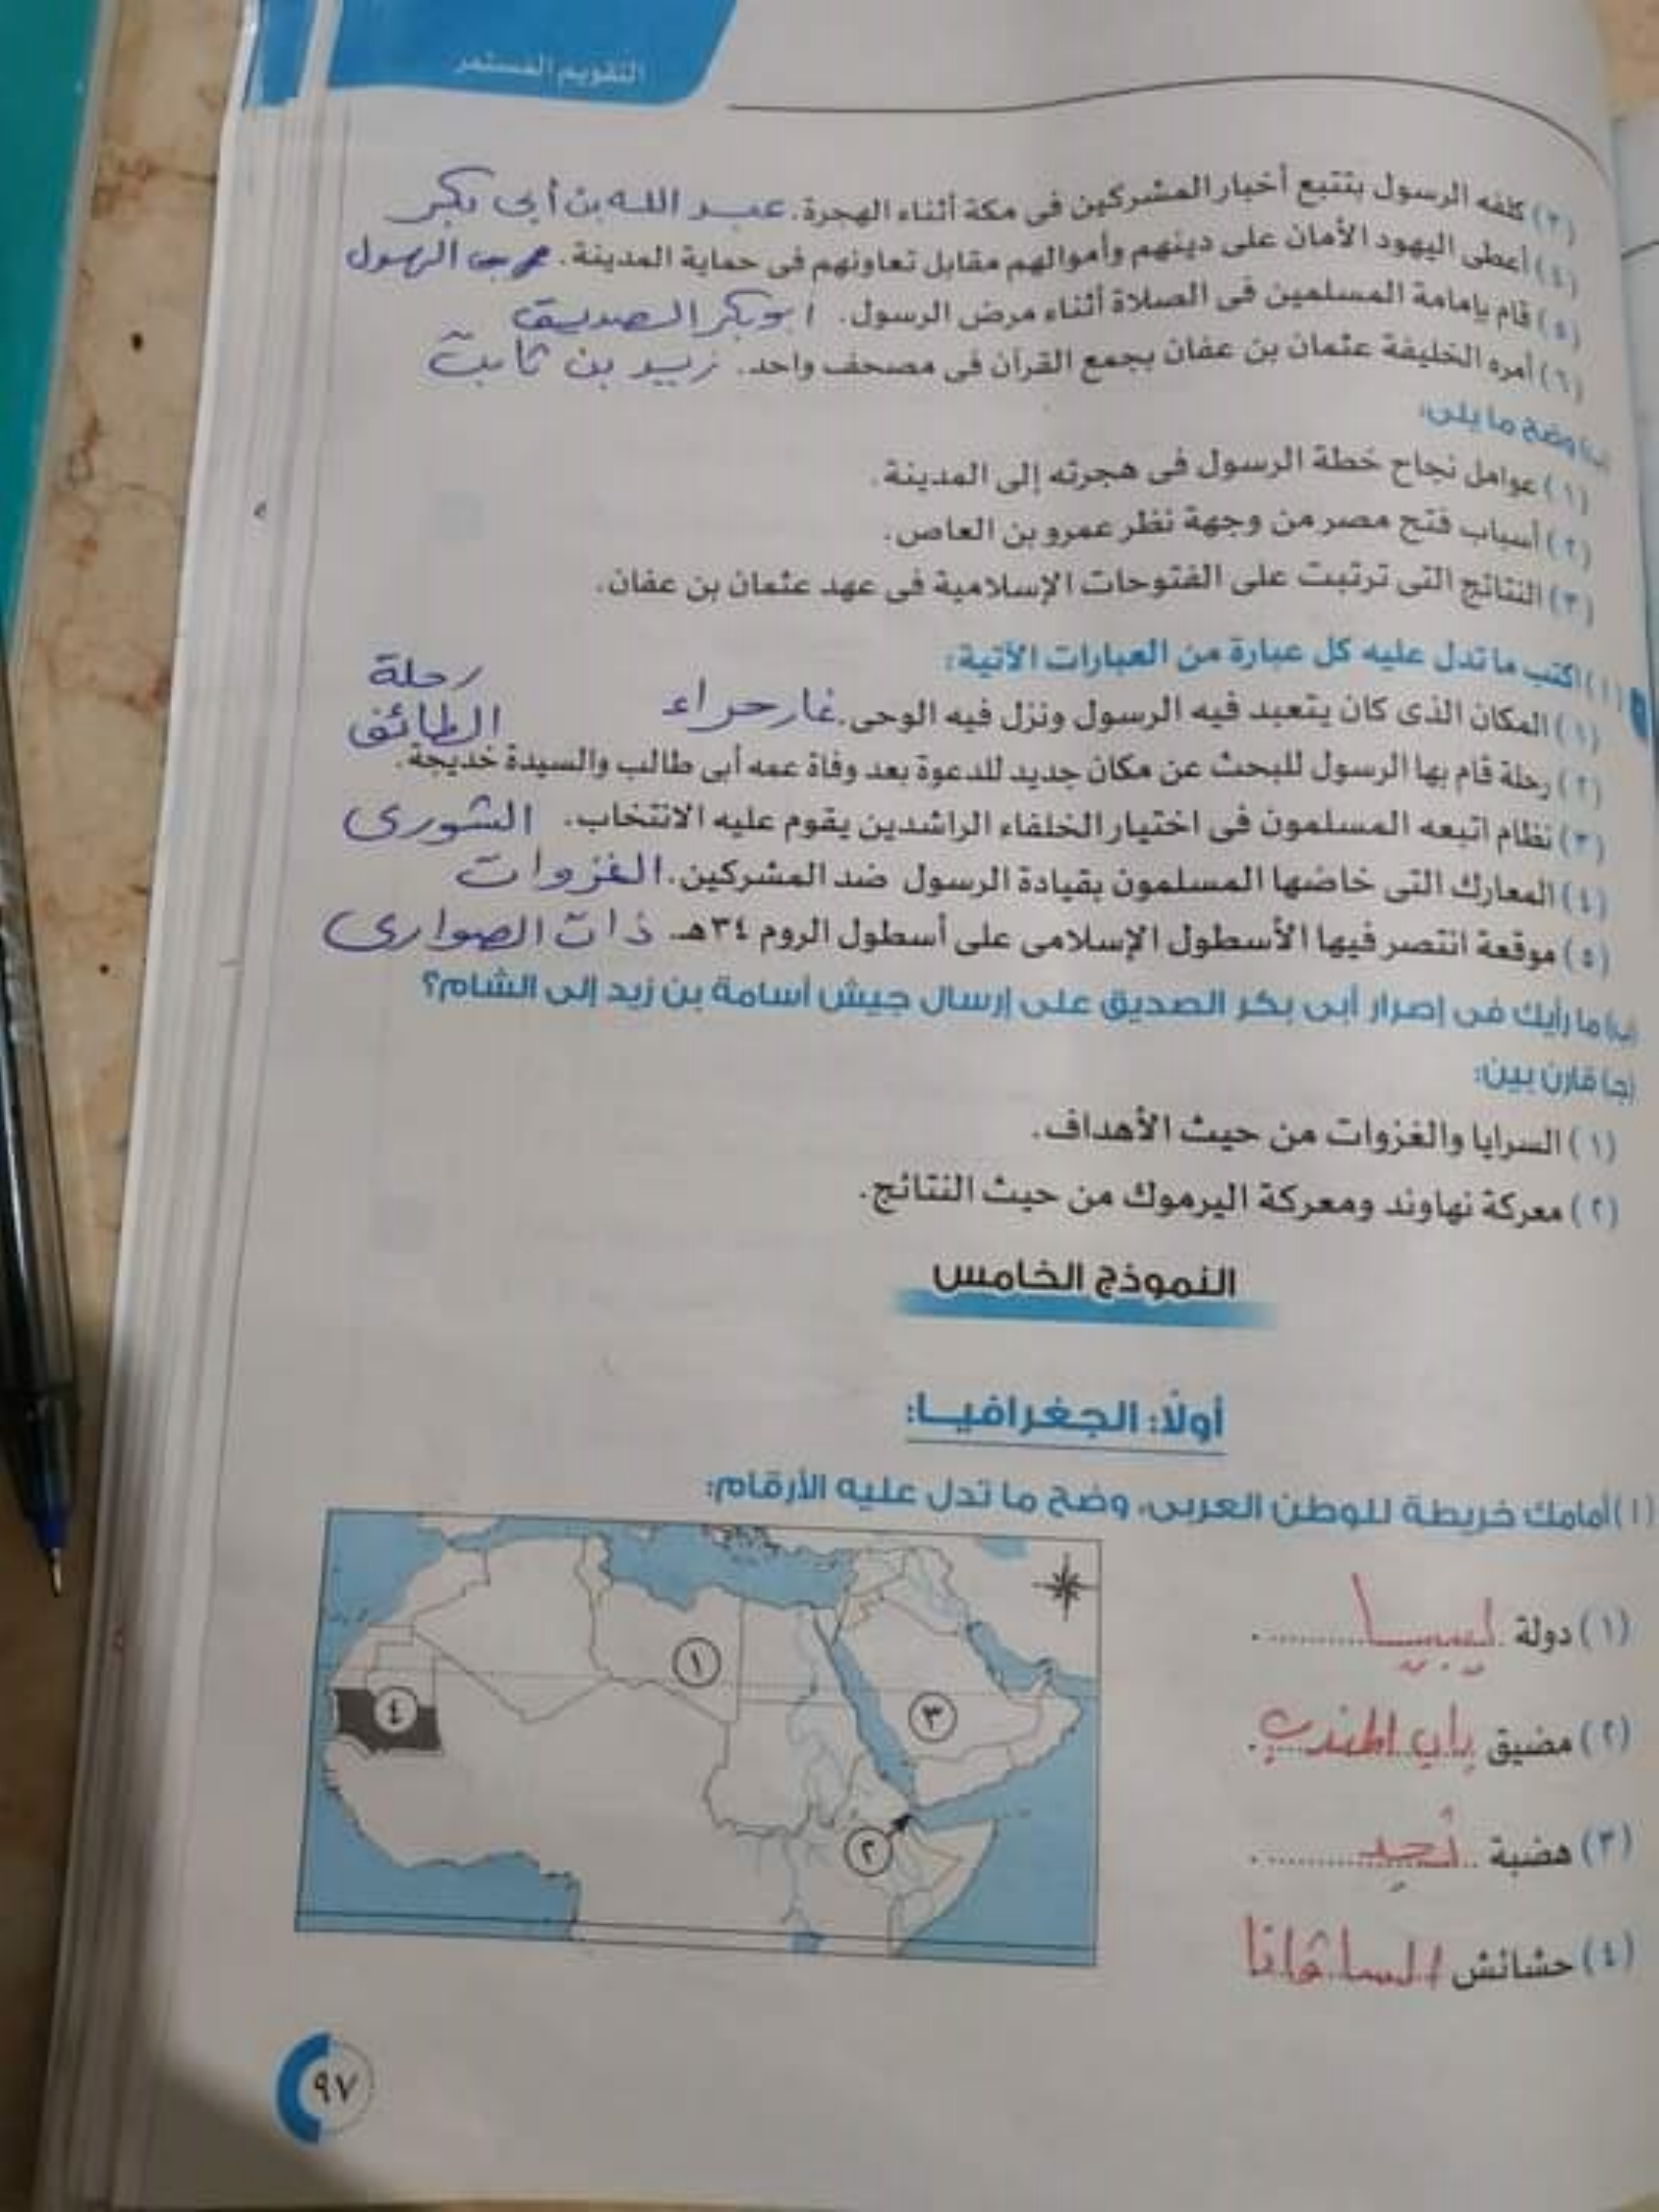 التقويم المستمر
(٣) كلفه الرسول بتتبع أخبار المشركين فى مكة أثناء الهجرة. عبد الله بن أبى بكر
(٤) أعطى اليهود الأمان على دينهم وأموالهم مقابل تعاونهم فى حماية المدينة. الرسول
(٥) قام بإمامة المسلمين فى الصلاة أثناء مرض الرسول. ابوبكر الصديق
(٦) أمره الخليفة عثمان بن عفان بجمع القرآن فى مصحف واحد. زيد بن ثابت
(ب) وضح ما يلى:
(١) عوامل نجاح خطة الرسول فى هجرته إلى المدينة.
(٢) أسباب فتح مصر من وجهة نظر عمرو بن العاص.
(٣) النتائج التى ترتبت على الفتوحات الإسلامية فى عهد عثمان بن عفان.
(أ) اكتب ما تدل عليه كل عبارة من العبارات الآتية:
(١) المكان الذى كان يتعبد فيه الرسول ونزل فيه الوحى. غار حراء
رحلة
الطائف
(٢) رحلة قام بها الرسول للبحث عن مكان جديد للدعوة بعد وفاة عمه أبى طالب والسيدة خديجة.
(٣) نظام اتبعه المسلمون فى اختيار الخلفاء الراشدين يقوم عليه الانتخاب. الشورى
(٤) المعارك التى خاضها المسلمون بقيادة الرسول ضد المشركين. الغزوات
(٥) موقعة انتصر فيها الأسطول الإسلامى على أسطول الروم ٣٤هـ. ذات الصوارى
(ب) ما رأيك فى إصرار أبى بكر الصديق على إرسال جيش أسامة بن زيد إلى الشام؟
(جـ) قارن بين:
(١) السرايا والغزوات من حيث الأهداف.
(٢) معركة نهاوند ومعركة اليرموك من حيث النتائج.
النموذج الخامس
أولًا: الجغرافيا:
(١) أمامك خريطة للوطن العربى، وضح ما تدل عليه الأرقام:
(١) دولة ليبيا
(٢) مضيق باب المندب
(٣) هضبة نجد
(٤) حشائش السافانا
١
٢
٣
٤
٩٧